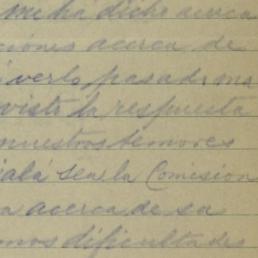 me ha dicho acerca
ciones acerca de
verlo pasado ma
visto la respuesta
nuestros temores
alá sea la Comisión
a acerca de su
mos dificultades